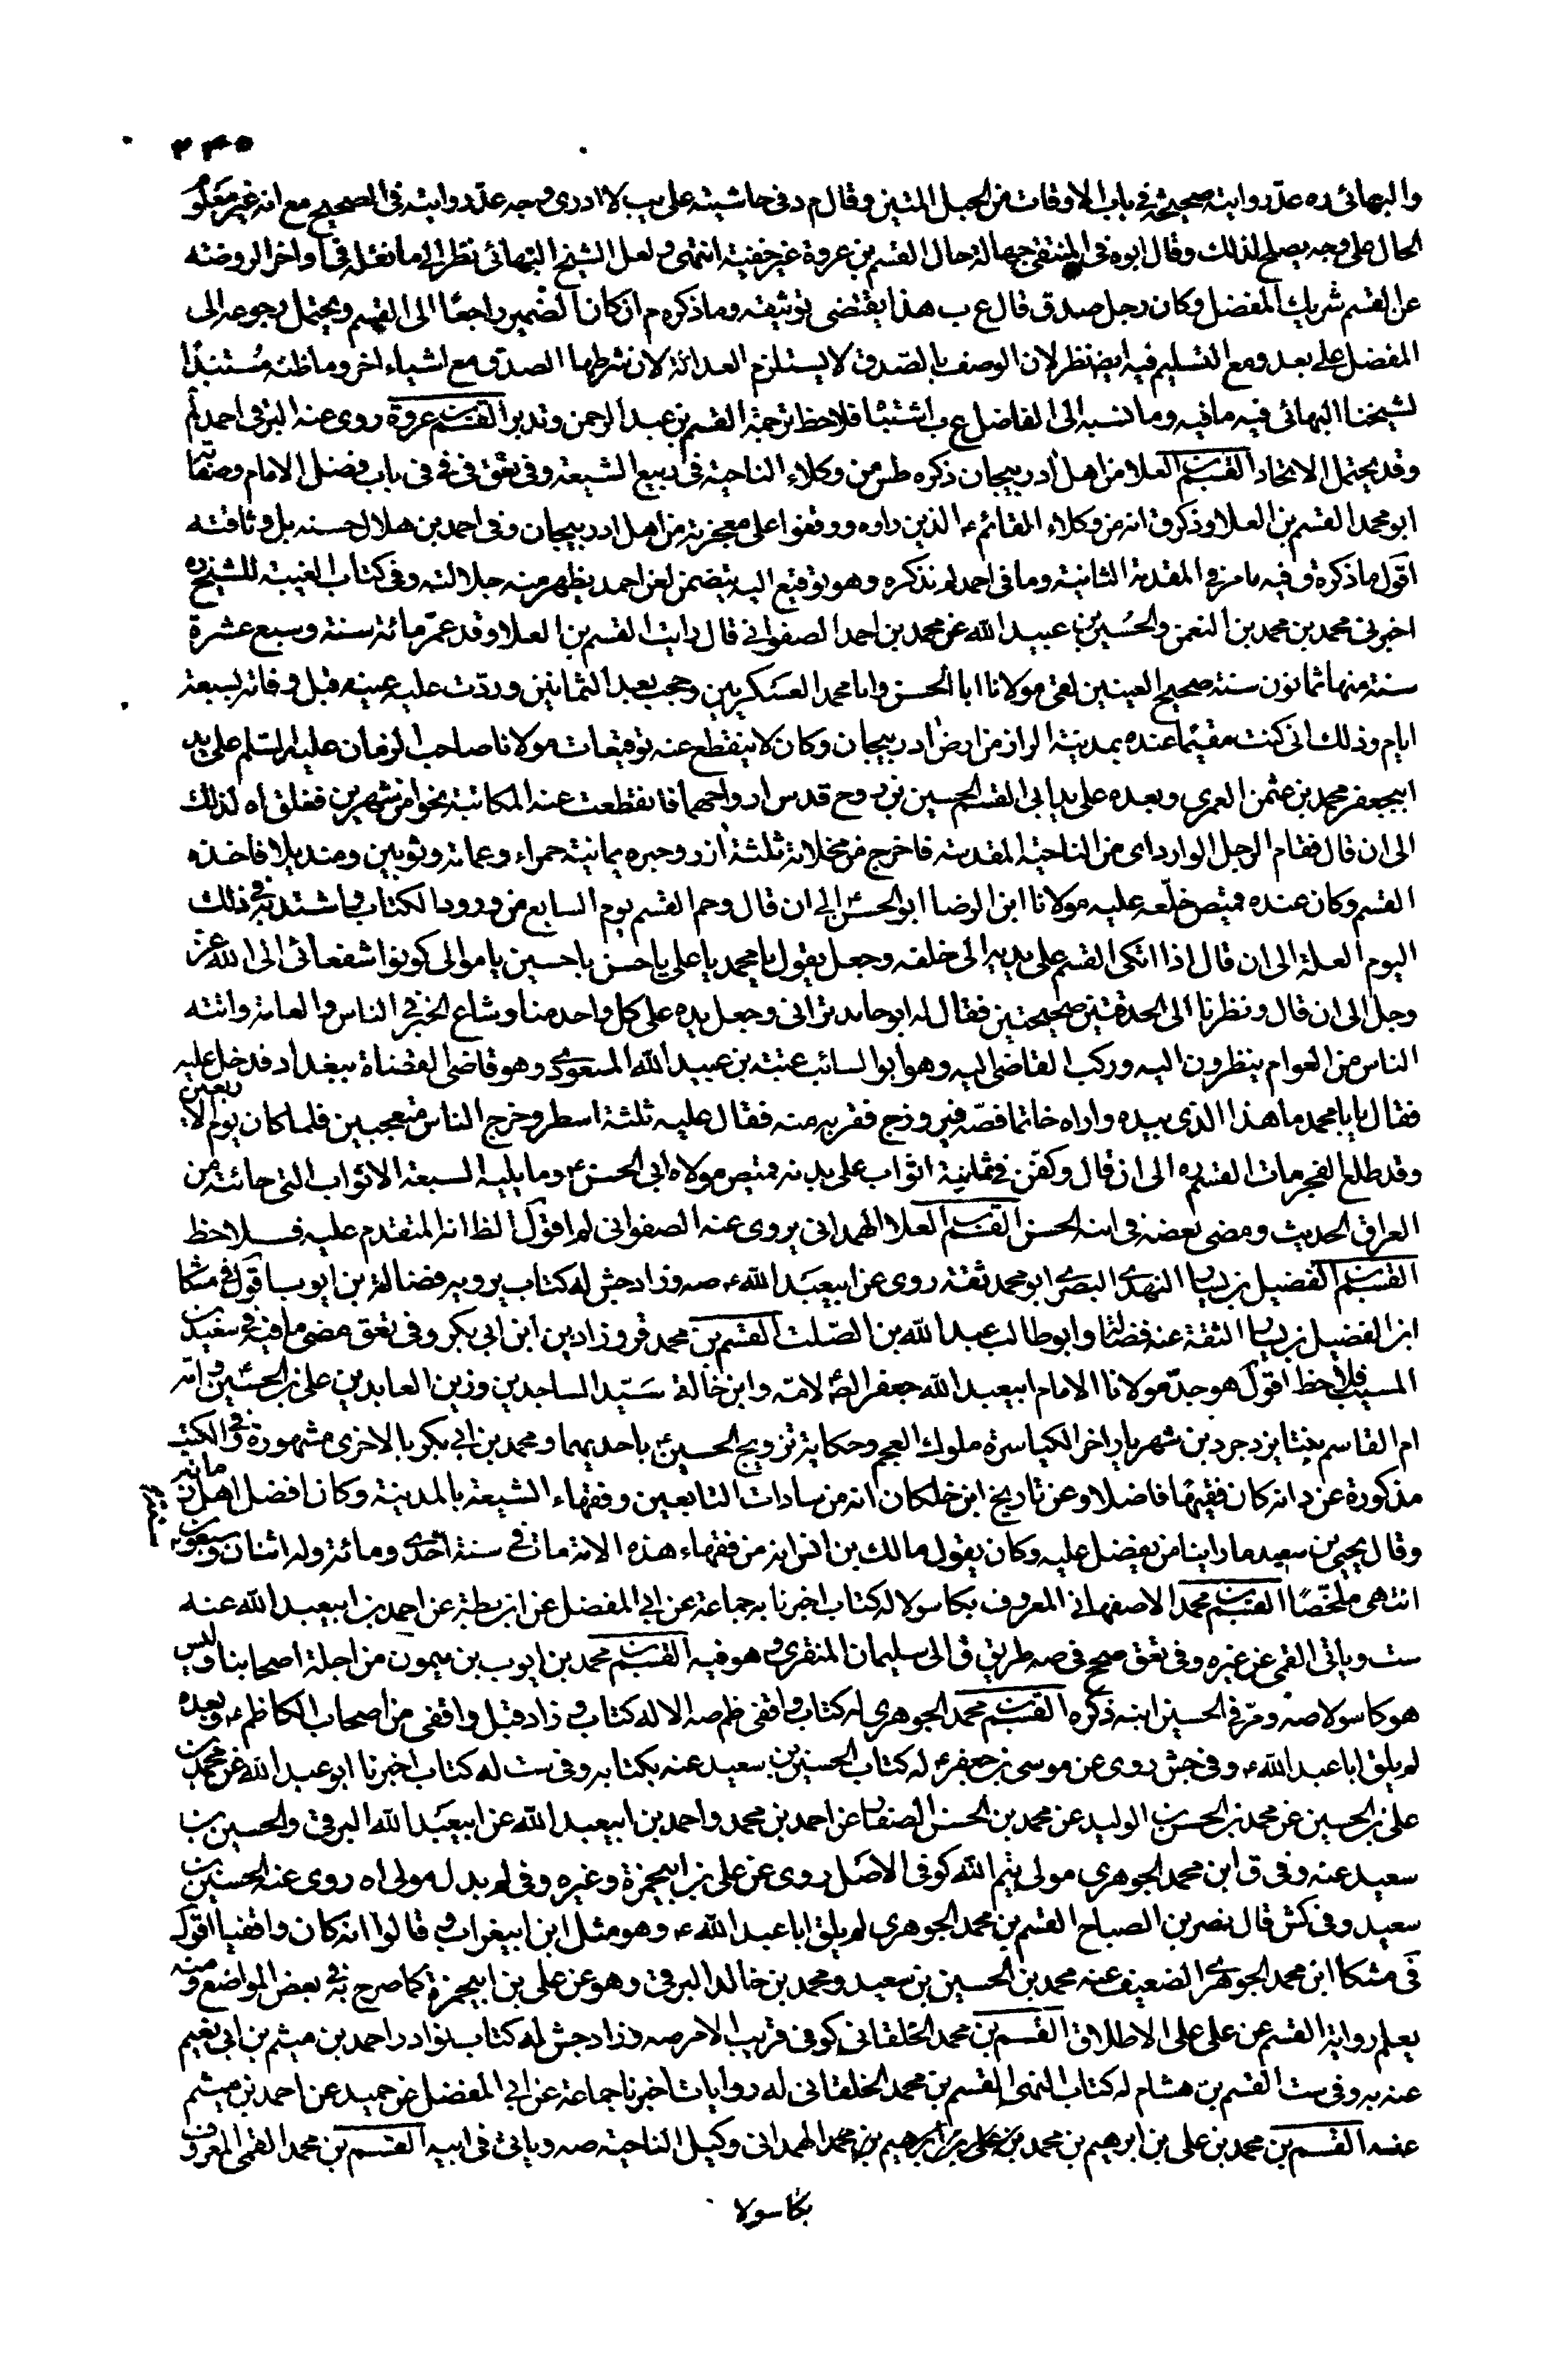 ٢٤٥
والبهائى ره عدّ روايته صحيحة فى باب الاوقات من الحبل المتين وقال م د فى حاشيته على يب لا ادرى وجه عدّ روايته فى الصحيح مع انه غير معلو
الحال على وجه يصلح لذلك وقال ابوه فى المنتقى جهالة حال القسم بن عروة غير خفية انتهى ولعل الشيخ البهائى نظر الى ما نقله فى اواخر الروضة
عن القسم شريك المفضل وكان رجل صدق قال ع ب هذا يقتضى توثيقه وما ذكره م ان كان الضمير راجعا الى القسم ويحتمل رجوعه الى
المفضل على بعد ومع التسليم فيه ايض نظر لان الوصف بالصدق لا يستلزم العدالة لان شرطها الصدق مع اشياء اخر وما ظنه مستندا
لشيخنا البهائى فيه ما فيه وما نسبه الى الفاضل ع ب اشتبا فلاحظ ترجمة القسم بن عبد الرحمن وتدبر القسم بن عروة روى عنه البرقى احمد لم
وقد يحتمل الاتحاد القسم بن العلا من اهل اذربيجان ذكره طس من وكلاء الناحية فى ربيع الشيعة وفى تعق فى فى باب فضل الامام وصفاته
ابو محمد القسم بن العلا وذكر ق انه من وكلاء القائم ع الذين راوه ووقفوا على معجزته من اهل اذربيجان وفى احمد بن هلال حسنه بل وثاقته
اقول ما ذكره ق فيه ما مر فى المقدمة الثانية وما فى احمد لم نذكره وهو توقيع اليه يتضمن لعن احمد يظهر منه جلالته وفى كتاب الغيبة للشيخ ره
اخبرنى محمد بن محمد بن النعمن والحسين بن عبيد الله عن محمد بن احمد الصفوانى قال رايت القسم بن العلا وقد عمّر مائة سنة وسبع عشرة
سنة منها ثمانون سنة صحيح العينين لقى مولانا ابا الحسن وابا محمد العسكريين وحجب بعد الثمانين وردّت عليه عينه قبل وفاته بسبعة
ايام وذلك انى كنت مقيما عنده بمدينة الران من ارض اذربيجان وكان لا ينقطع عنه توقيعات مولانا صاحب الزمان عليه السلم على يد
ابيجعفر محمد بن عثمن العمرى وبعده على يد ابى القسم الحسين بن روح قدس ارواحهما فانقطعت عنه المكاتبة نحوا من شهرين فغلق اه لذلك
الى ان قال فقام الرجل الوارد اى من الناحية المقدسة فاخرج من مخلاته ثلثة ازر وحبرة يمانية حمراء وعمامة وثوبين ومنديلا فاخذه
القسم وكان عنده قميص خلّعه عليه مولانا ابن الرضا ابو الحسن ع الى ان قال وحم القسم يوم السابع من ورود الكتاب واشتد به فى ذلك
اليوم العلة الى ان قال اذا اتكى القسم على يديه الى خلفه وجعل يقول يا محمد يا على يا حسن يا حسين يا موالى كونوا شفعائى الى الله عز
وجل الى ان قال ونظرنا الى الحدقتين صحيحتين فقال له ابو حامد ترانى وجعل يده على كل واحد منا وشاع الخبر فى الناس والعامة واتته
الناس من العوام ينظرون اليه وركب القاضى اليه وهو ابو السائب عتبة بن عبيد الله المسعودى وهو قاضى القضاة ببغداد فدخل عليه
فقال يا با محمد ما هذا الذى بيده واراه خاتما فصّه فيروزج فقربه منه فقال عليه ثلثة اسطر وخرج الناس متعجبين فلما كان يوم الاربعين
وقد طلع الفجر مات القسم ره الى ان قال وكفن فى ثمانية اثواب على بدنه قميص مولاه ابى الحسن ع وما يليه السبعة الاثواب التى جائته من
العراق الحديث ومضى بعضه فى ابنه الحسن القسم بن العلا الهمدانى يروى عنه الصفوانى لم اقول الظ انه المتقدم عليه فلاحظ
القسم بن الفضيل بن يسار النهدى البصرى ابو محمد ثقة روى عن ابيعبد الله ع صه وزاد جش له كتاب يرويه فضالة بن ايوب اقول فى مشكا
ابن الفضيل بن يسار الثقة عنه فضالة وابو طالب عبد الله بن الصلت القسم بن محمد قر وزاد ين ابن ابى بكر وفى تعق مضى ما فيه فى سعيد بن
المسيب فلاحظ اقول هو جدّ مولانا الامام ابيعبد الله جعفر الص ع لامّه وابن خالة سيّد الساجدين وزين العابدين على بن الحسين ع وامّه
ام القاسم بنتا يزدجرد بن شهريار اخر الكياسرة ملوك العجم وحكاية تزويج الحسين ع باحديهما ومحمد بن ابى بكر بالاخرى مشهورة فى الكتب
مذكورة عن د انه كان فقيها فاضلا وعن تاريخ ابن خلكان انه من سادات التابعين وفقهاء الشيعة بالمدينة وكان افضل اهل زمانه
وقال يحيى بن سعيد ما راينا من يفضل عليه وكان يقول مالك بن انس انه من فقهاء هذه الامة مات فى سنة احدى ومائة وله اثنان وسبعون
انتهى ملخصا القسم بن محمد الاصفهانى المعروف بكاسولا له كتاب اخبرنا به جماعة عن ابى المفضل عن ابن بطة عن احمد بن ابيعبد الله عنه
ست وياتى القمى عن غيره وفى تعق صحح فى صه طريق ق الى سليمان المنقرى وهو فيه القسم بن محمد بن ايوب بن ميمون من اجلة اصحابنا وليس
هو كاسولا صه ومرّ فى الحسين ابنه ذكره القسم بن محمد الجوهرى له كتاب واقفى ظم صه الا له كتاب وزاد قبل واقفى من اصحاب الكاظم ع وبعده
لم يلق ابا عبد الله ع وفى جش روى عن موسى بن جعفر ع له كتاب الحسين بن سعيد عنه بكتابه وفى ست له كتاب اخبرنا ابو عبد الله عن محمد بن
على بن الحسين عن محمد بن الحسن بن الوليد عن محمد بن الحسن الصفار عن احمد بن محمد واحمد بن ابيعبد الله عن ابيعبد الله البرقى والحسين بن
سعيد عنه وفى ق ابن محمد الجوهرى مولى تيم الله كوفى الاصل روى عن على بن ابيحمزة وغيره وفى لم بدل له مولى اه روى عنه الحسين بن
سعيد وفى كش قال نصر بن الصباح القسم بن محمد الجوهرى لم يلق ابا عبد الله ع وهو مثل ابن ابيغراب وقالوا انه كان واقفيا اقول
فى مشكا ابن محمد الجوهرى الضعيف عنه محمد بن الحسين بن سعيد ومحمد بن خالد البرقى وهو عن على بن ابيحمزة كما صرح به فى بعض المواضع ومنه
يعلم رواية القسم عن على على الاطلاق القسم بن محمد الخلقانى كوفى قريب الامر صه وزاد جش له كتاب نوادر احمد بن ميثم بن ابى نعيم
عنه به وفى ست القسم بن هشام له كتاب النهى القسم بن محمد الخلقانى له روايات اخبرنا جماعة عن ابى المفضل عن حميد عن احمد بن ميثم
عنه القسم بن محمد بن على بن ابرهيم بن محمد بن على بن ابرهيم بن محمد الهمدانى وكيل الناحية صه وياتى فى ابيه القسم بن محمد القمى المعروف
بكاسولا